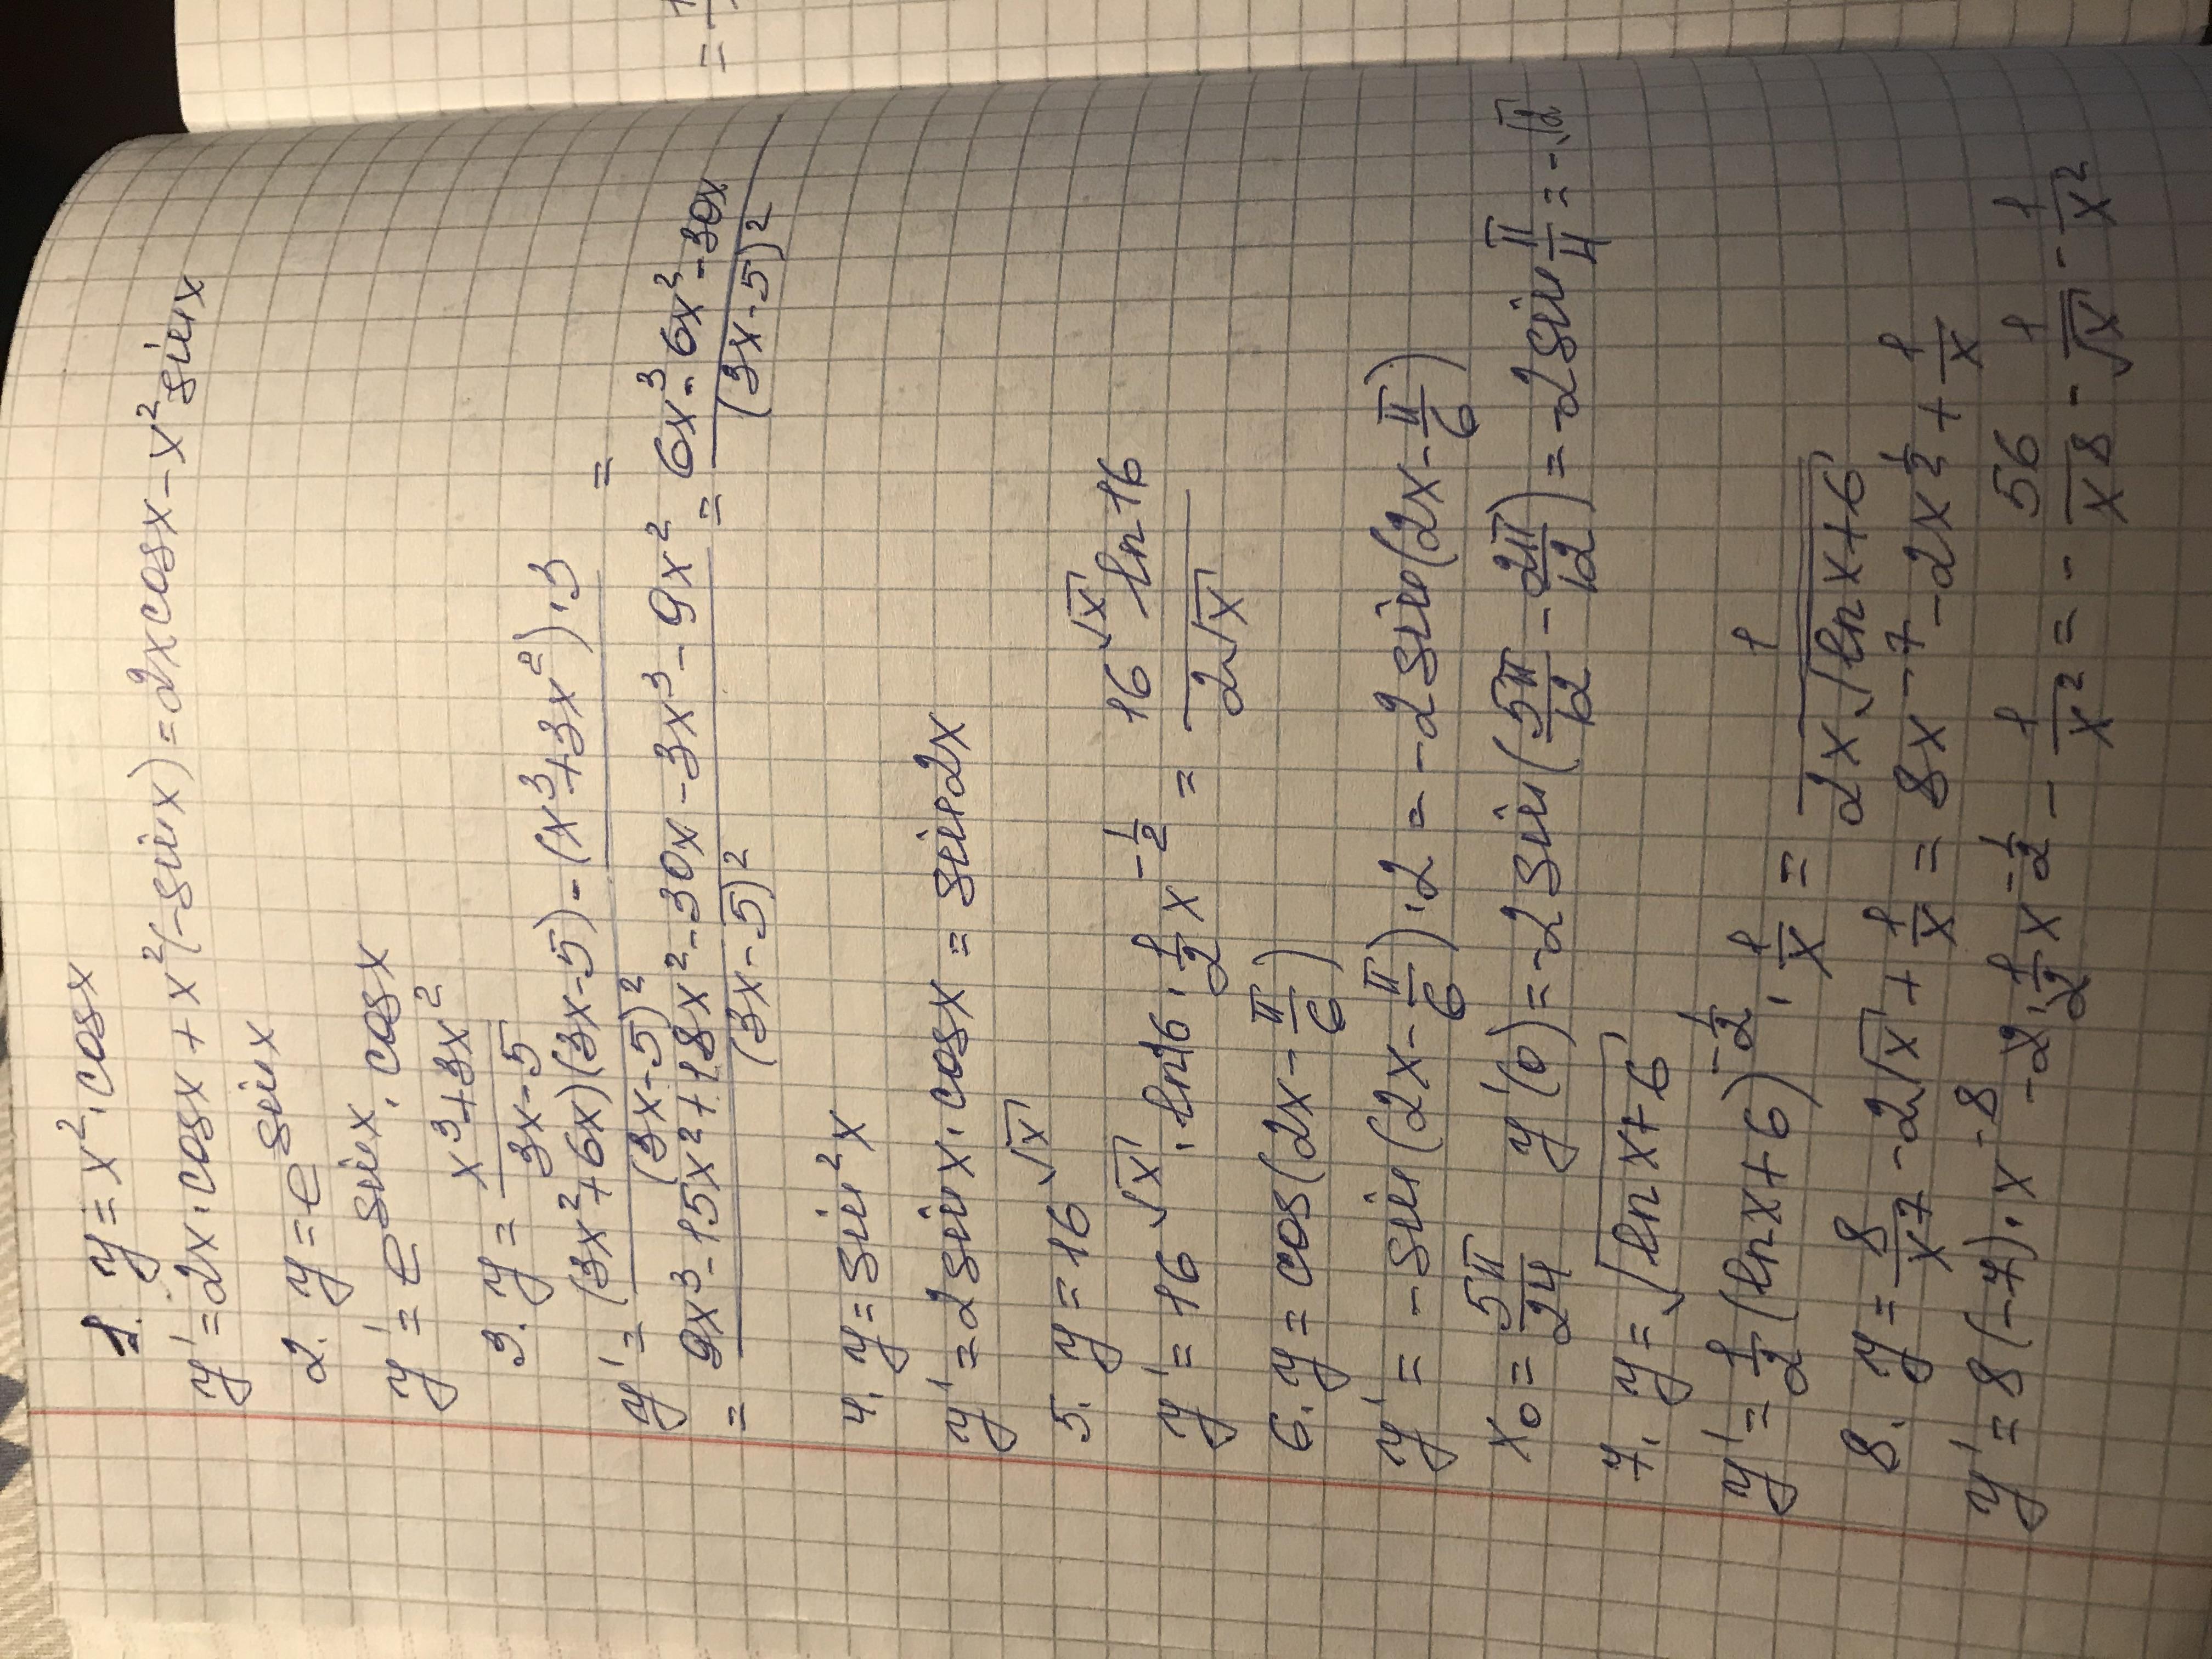 1. y = x²·cosx
y' = 2x·cosx + x²(-sinx) = 2xcosx - x²sinx
2. y = e^(sinx)
y' = e^(sinx)·cosx
3. y = (x³+3x²)/(3x-5)
y' = ((3x²+6x)(3x-5) - (x³+3x²)·3)/(3x-5)² =
= (9x³-15x²+18x²-30x-3x³-9x²)/(3x-5)² = (6x³-6x²-30x)/(3x-5)²
4. y = sin²x
y' = 2sinx·cosx = sin2x
5. y = 16^(√x)
y' = 16^(√x)·ln16·1/2 x^(-1/2) = (16^(√x) ln16)/(2√x)
6. y = cos(2x - π/6)
y' = -sin(2x - π/6)·2 = -2sin(2x - π/6)
x₀ = 5π/24 y'(0) = -2sin(5π/12 - 2π/12) = -2sin π/4 = -√2
7. y = √(lnx+6)
y' = 1/2(lnx+6)^(-1/2)·1/x = 1/(2x√(lnx+6))
8. y = 8/x⁷ - 2√x + 1/x = 8x^(-7) - 2x^(1/2) + 1/x
y' = 8(-7)·x^(-8) - 2·1/2x^(-1/2) - 1/x² = -56/x⁸ - 1/√x - 1/x²
=